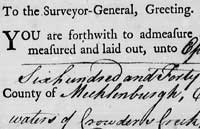 To the Surveyor-General, Greeting.
YOU are forthwith to admeasure
measured and laid out, unto
Six hundred and Forty
County of Mecklenburgh,
waters of Crowders Creek